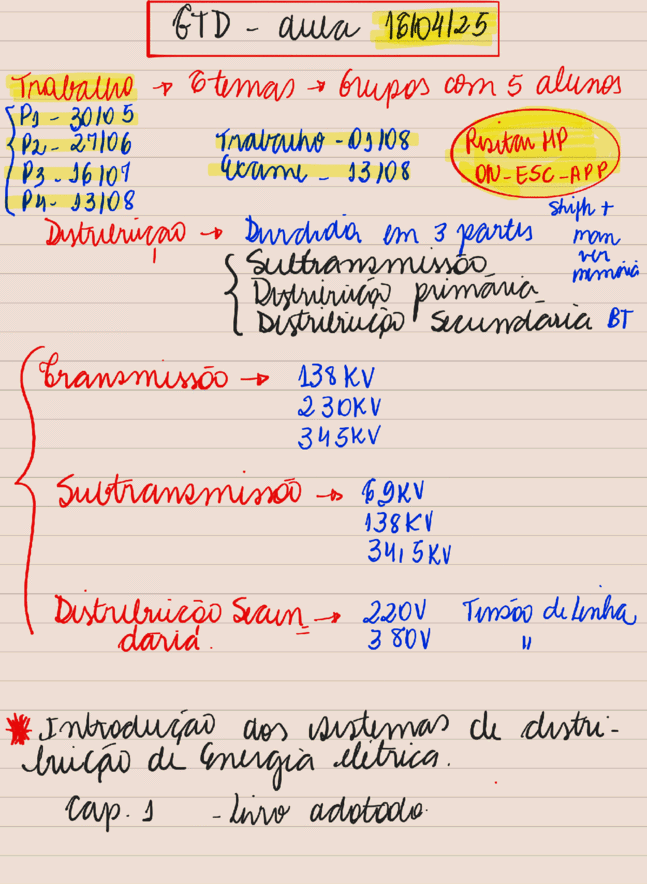 GTD - aula 16/04/25
Trabalho → 6 temas → Grupos com 5 alunos
P1 - 30/05
P2 - 27/06
P3 - 16/07
P4 - 13/08
Trabalho - 01/08
Exame - 13/08
Resetar HP
ON-ESC-APP
Shift +
mem
ver
memória
Distribuição → Dividida em 3 partes
Subtransmissão
Distribuição primária
Distribuição Secundária BT
Transmissão → 138KV
230KV
345KV
Subtransmissão → 69KV
138KV
34,5KV
Distribuição Secun
daria.
→ 220V Tensão de Linha
380V "
* Introdução aos sistemas de distri-
buição de Energia elétrica.
Cap. 1 - Livro adotado